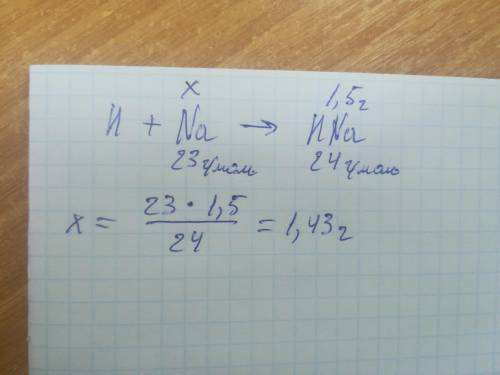 x 1,5г
H + Na → HNa
23г/моль 24г/моль
x = 23 · 1,5 / 24 = 1,43г